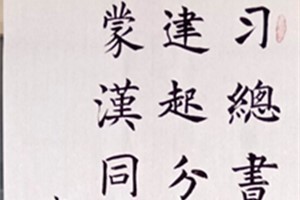 习總書
建起分
蒙漢同